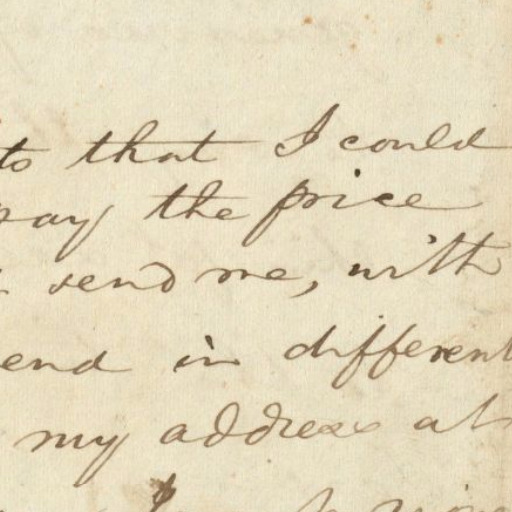 to that I could
pay the price
send me, with
end in different
my address at